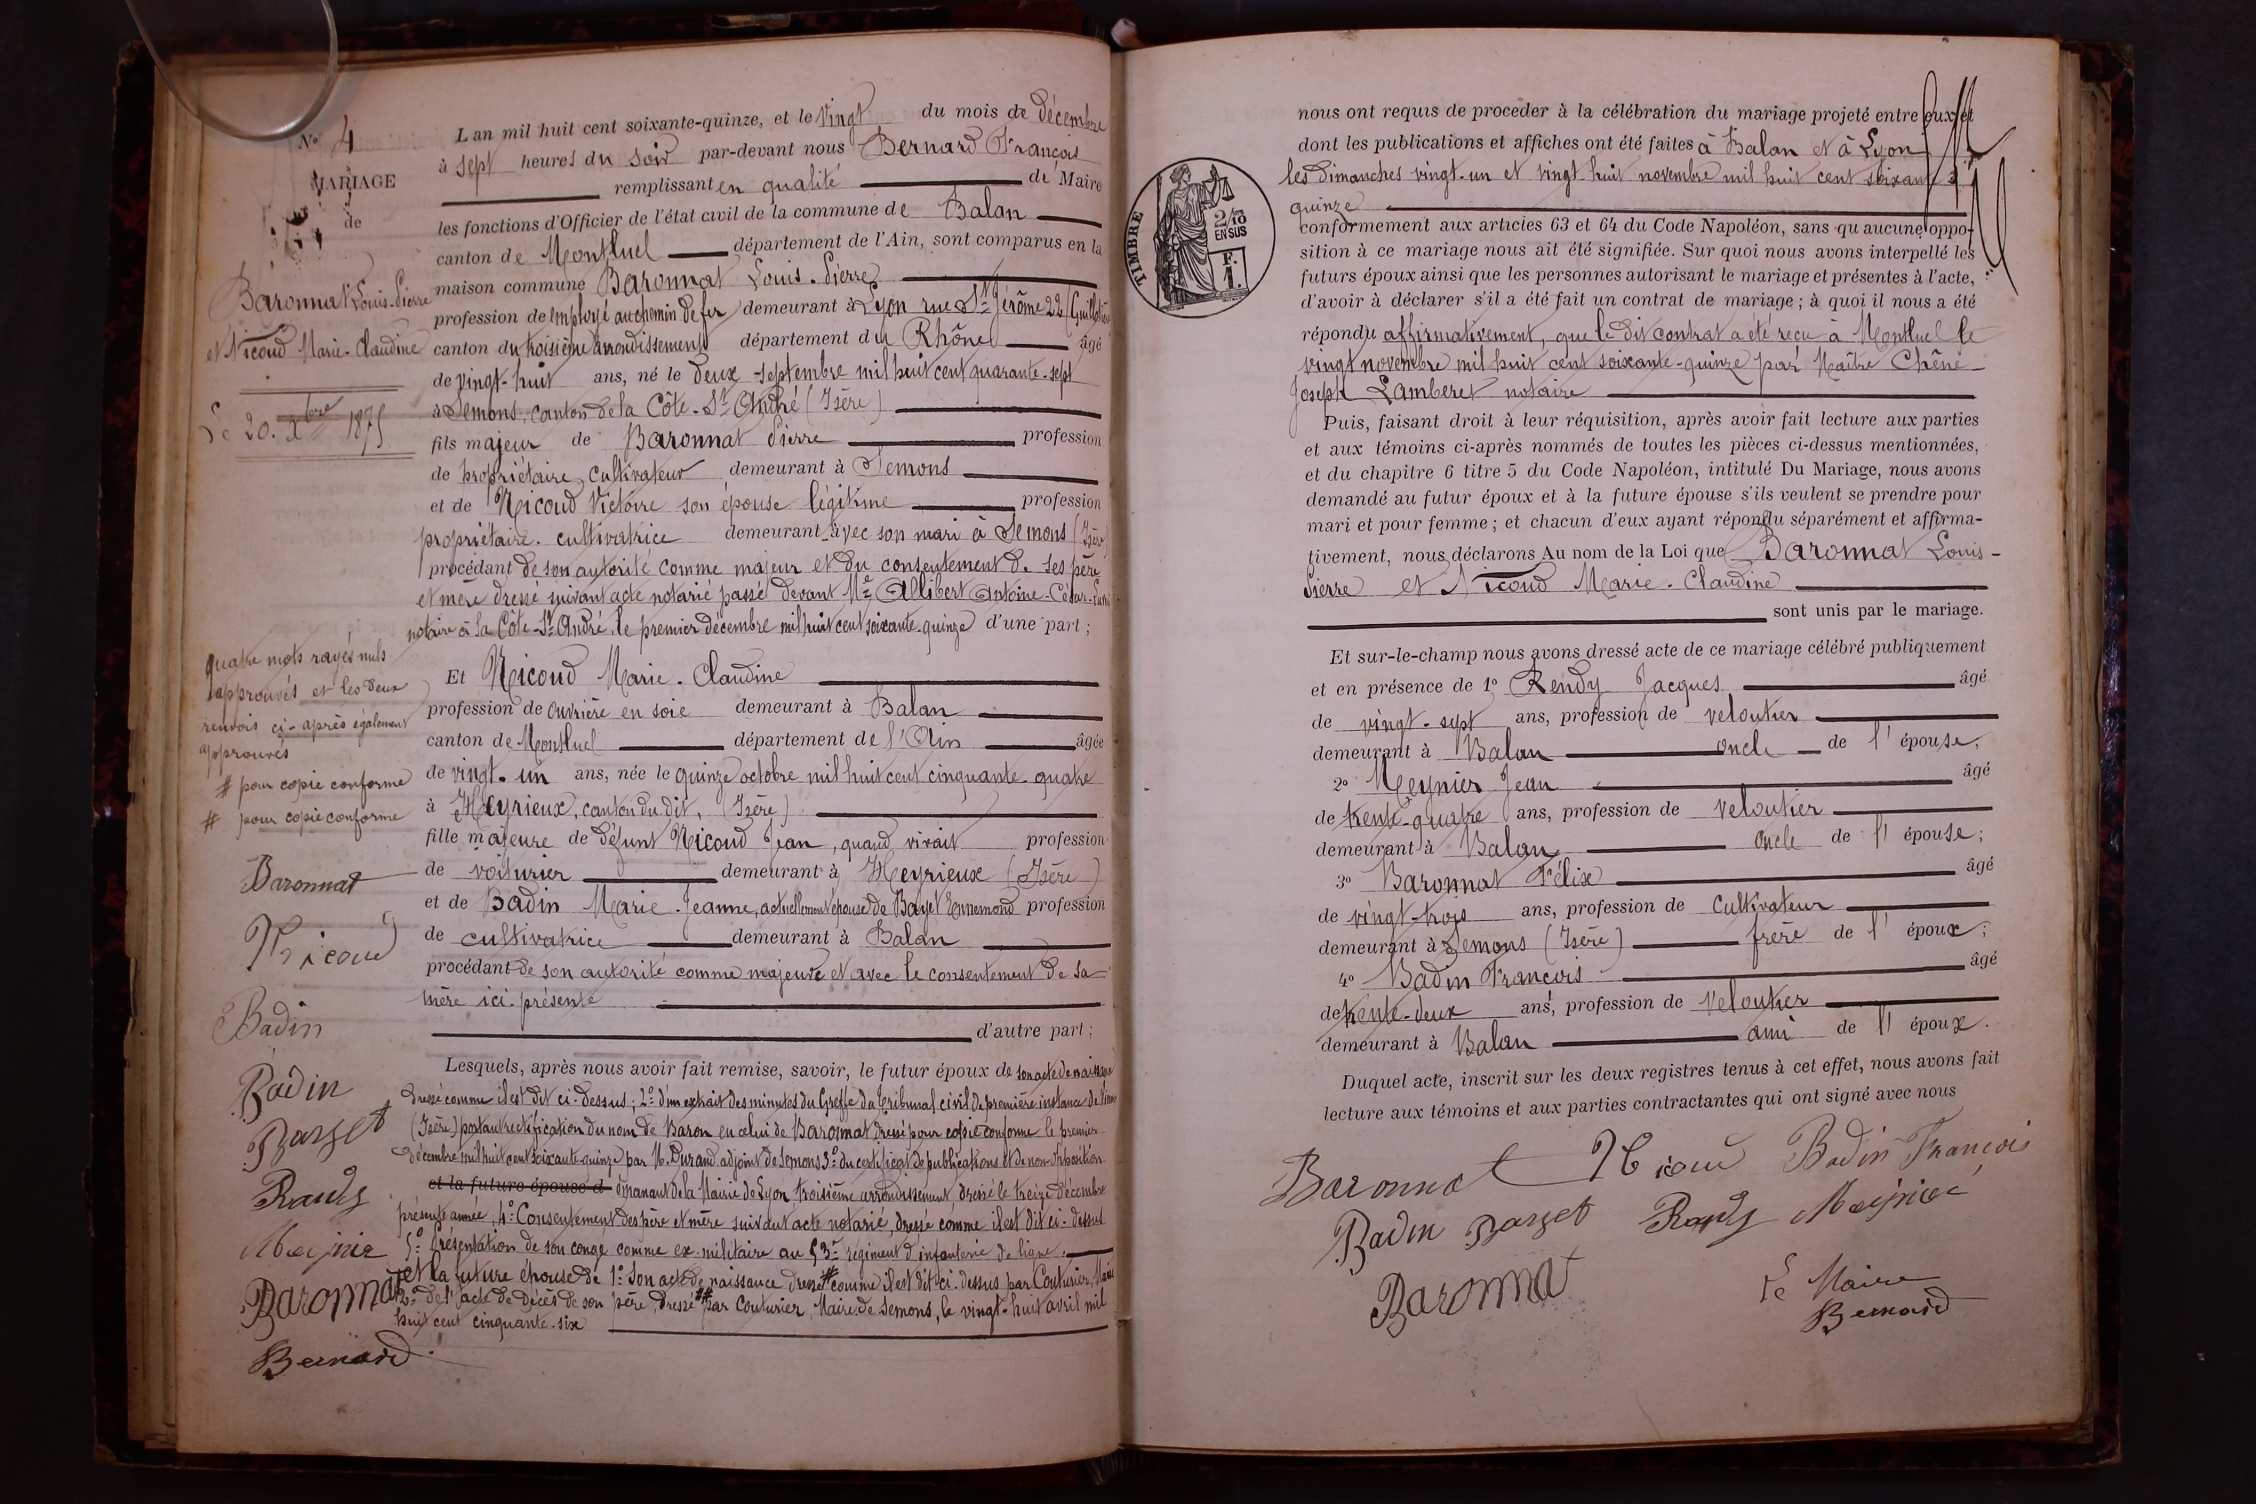 No 4
MARIAGE
de
Baronnat Louis-Pierre
et Nicoud Marie-Claudine
Le 20. Xbre 1875
quatre mots rayés nuls
approuvés et les deux
renvois ci-après également
approuvés
# pour copie conforme
# pour copie conforme
Baronnat
Nicoud
Badin
Badin
Rendy
Meynier
Baronnat
Bernard
L'an mil huit cent soixante-quinze, et le vingt du mois de décembre
à sept heures du soir par-devant nous Bernard François
remplissant en qualité de Maire
les fonctions d'Officier de l'état civil de la commune de Balan
canton de Montluel département de l'Ain, sont comparus en la
maison commune Baronnat Louis-Pierre
profession de employé au chemin de fer demeurant à Lyon rue St Jérôme 22 (Guillotière
canton du troisième arrondissement département du Rhône âgé
de vingt-huit ans, né le deux septembre mil huit cent quarante-sept
à Semons, canton de la Côte-St André (Isère)
fils majeur de Baronnat Pierre profession
de propriétaire cultivateur demeurant à Semons
et de Nicoud Victoire son épouse légitime profession
propriétaire-cultivatrice demeurant avec son mari à Semons (Isère)
procédant de son autorité comme majeur et du consentement de ses père
et mère dressé suivant acte notarié passé devant Me Allibert Antoine-César
notaire à la Côte-St André, le premier décembre mil huit cent soixante-quinze d'une part;
Et Nicoud Marie-Claudine
profession de ouvrière en soie demeurant à Balan
canton de Montluel département de l'Ain âgée
de vingt-un ans, née le quinze octobre mil huit cent cinquante-quatre
à Heyrieux, canton du dit, (Isère)
fille majeure de défunt Nicoud Jean, quand vivait profession
de voiturier demeurant à Heyrieux (Isère)
et de Badin Marie-Jeanne, actuellement épouse de Bayet Ennemond profession
de cultivatrice demeurant à Balan
procédant de son autorité comme majeure et avec le consentement de sa
mère ici présente
d'autre part;
Lesquels, après nous avoir fait remise, savoir, le futur époux de son acte de naissance
dressé comme il est dit ci-dessus; 2º d'un extrait des minutes du Greffe du Tribunal civil de première instance de
(Isère) portant rectification du nom de Baron en celui de Baronnat dressé pour copie conforme le premier
décembre mil huit cent soixante-quinze par M. Durand adjoint de Semons 3º du certificat de publications et de non opposition
et la future épouse d émanant de la Mairie de Lyon troisième arrondissement dressé le treize décembre
présente année, 4º Consentement des père et mère suivant acte notarié, dressé comme il est dit ci-dessus
5º Présentation de son congé comme ex-militaire au 53e régiment d'infanterie de ligne.
et la future épouse de 1º Son acte de naissance dressé # comme il est dit ci-dessus par Couturier, Maire
2º de l'acte de décès de son père, dressé # par Couturier, Maire de Semons, le vingt-huit avril mil
huit cent cinquante-six
TIMBRE
2/10
EN SUS
F.
1.
nous ont requis de procéder à la célébration du mariage projeté entre eux et
dont les publications et affiches ont été faites à Balan et à Lyon
les dimanches vingt-un et vingt-huit novembre mil huit cent soixante
quinze
conformément aux articles 63 et 64 du Code Napoléon, sans qu'aucune oppo-
sition à ce mariage nous ait été signifiée. Sur quoi nous avons interpellé les
futurs époux ainsi que les personnes autorisant le mariage et présentes à l'acte,
d'avoir à déclarer s'il a été fait un contrat de mariage; à quoi il nous a été
répondu affirmativement, que le dit contrat a été reçu à Montluel le
vingt novembre mil huit cent soixante-quinze par Maître Chêne-
Joseph Lamberet notaire
Puis, faisant droit à leur réquisition, après avoir fait lecture aux parties
et aux témoins ci-après nommés de toutes les pièces ci-dessus mentionnées,
et du chapitre 6 titre 5 du Code Napoléon, intitulé Du Mariage, nous avons
demandé au futur époux et à la future épouse s'ils veulent se prendre pour
mari et pour femme; et chacun d'eux ayant répondu séparément et affirma-
tivement, nous déclarons Au nom de la Loi que Baronnat Louis-
Pierre et Nicoud Marie-Claudine
sont unis par le mariage.
Et sur-le-champ nous avons dressé acte de ce mariage célébré publiquement
et en présence de 1º Rendy Jacques âgé
de vingt-sept ans, profession de veloutier
demeurant à Balan oncle de l'épouse;
2º Meynier Jean âgé
de trente-quatre ans, profession de veloutier
demeurant à Balan oncle de l'épouse;
3º Baronnat Félix âgé
de vingt-trois ans, profession de cultivateur
demeurant à Semons (Isère) frère de l'époux;
4º Badin François âgé
de trente-deux ans, profession de veloutier
demeurant à Balan ami de l'époux.
Duquel acte, inscrit sur les deux registres tenus à cet effet, nous avons fait
lecture aux témoins et aux parties contractantes qui ont signé avec nous
Baronnat Nicoud Badin François
Badin Rendy Meynier
Baronnat
Le Maire
Bernard